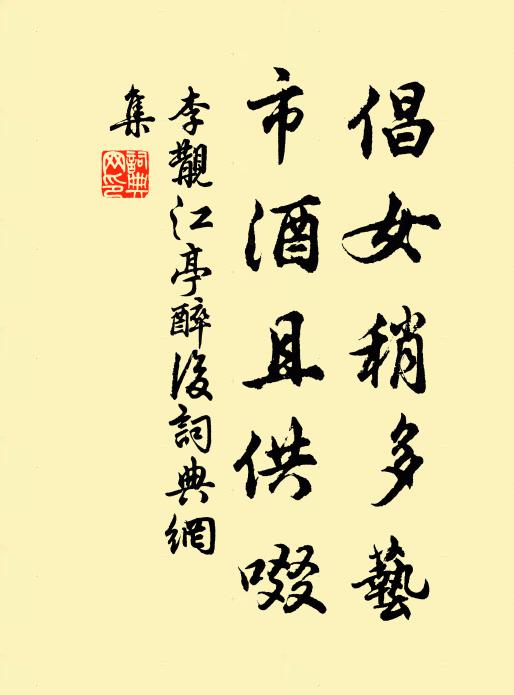 倡女稍多藝
市酒且供啜
李覯江亭醉後詞典網
集
詞典
网印